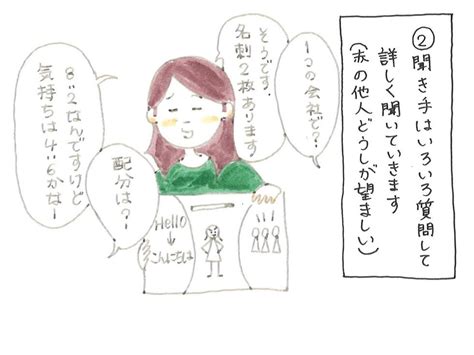 ②聞き手はいろいろ質問して
詳しく聞いていきます
(赤の他人どうしが望ましい)
1つの会社で?
そうです.
名刺2枚あります
配分は?
8:2なんですけど
気持ちは4:6かなー
Hello
↓
こんにちは